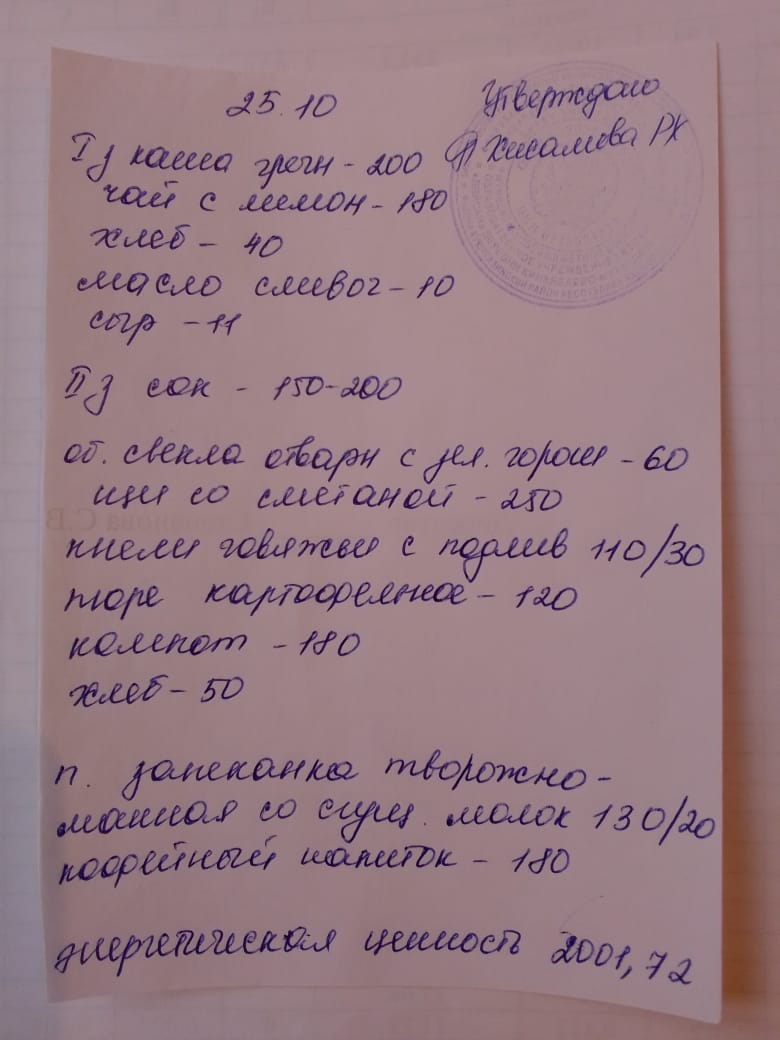 25.10
Утверждаю
Хисамова РХ
I з каша гречн - 200
чай с лимон - 180
хлеб - 40
масло сливоч - 10
сыр - 11
II з сок - 150-200
об. свекла отварн с зел. горош - 60
щи со сметаной - 250
кнели говяжьи с подлив 110/30
пюре картофельное - 120
компот - 180
хлеб - 50
п. запеканка творожно-
манная со сгущ. молок 130/20
кофейный напиток - 180
энергетическая ценность 2001,72